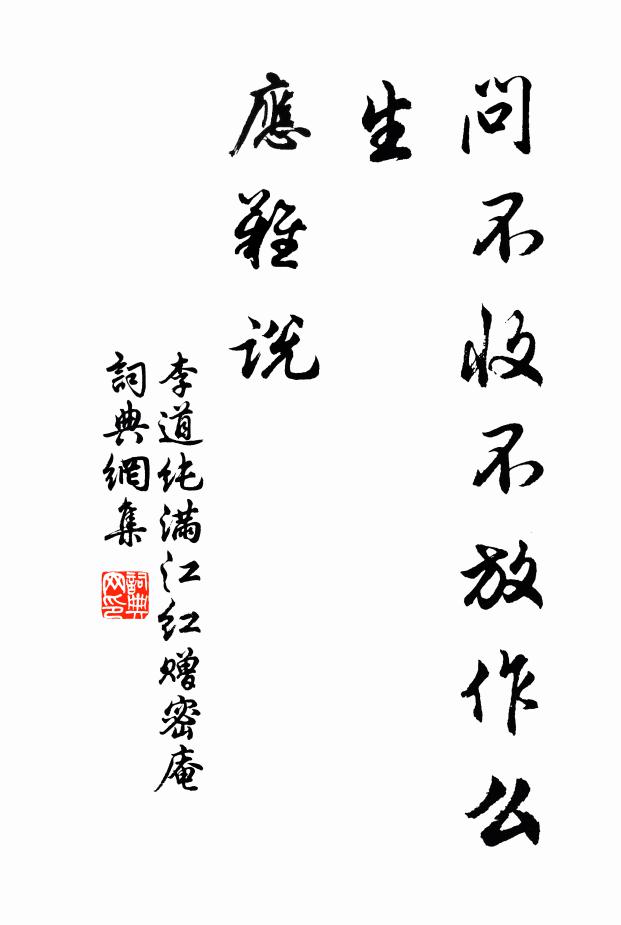 問不收不放作么
生
應難说
李道纯满江红赠密庵
詞典網集
詞典网印